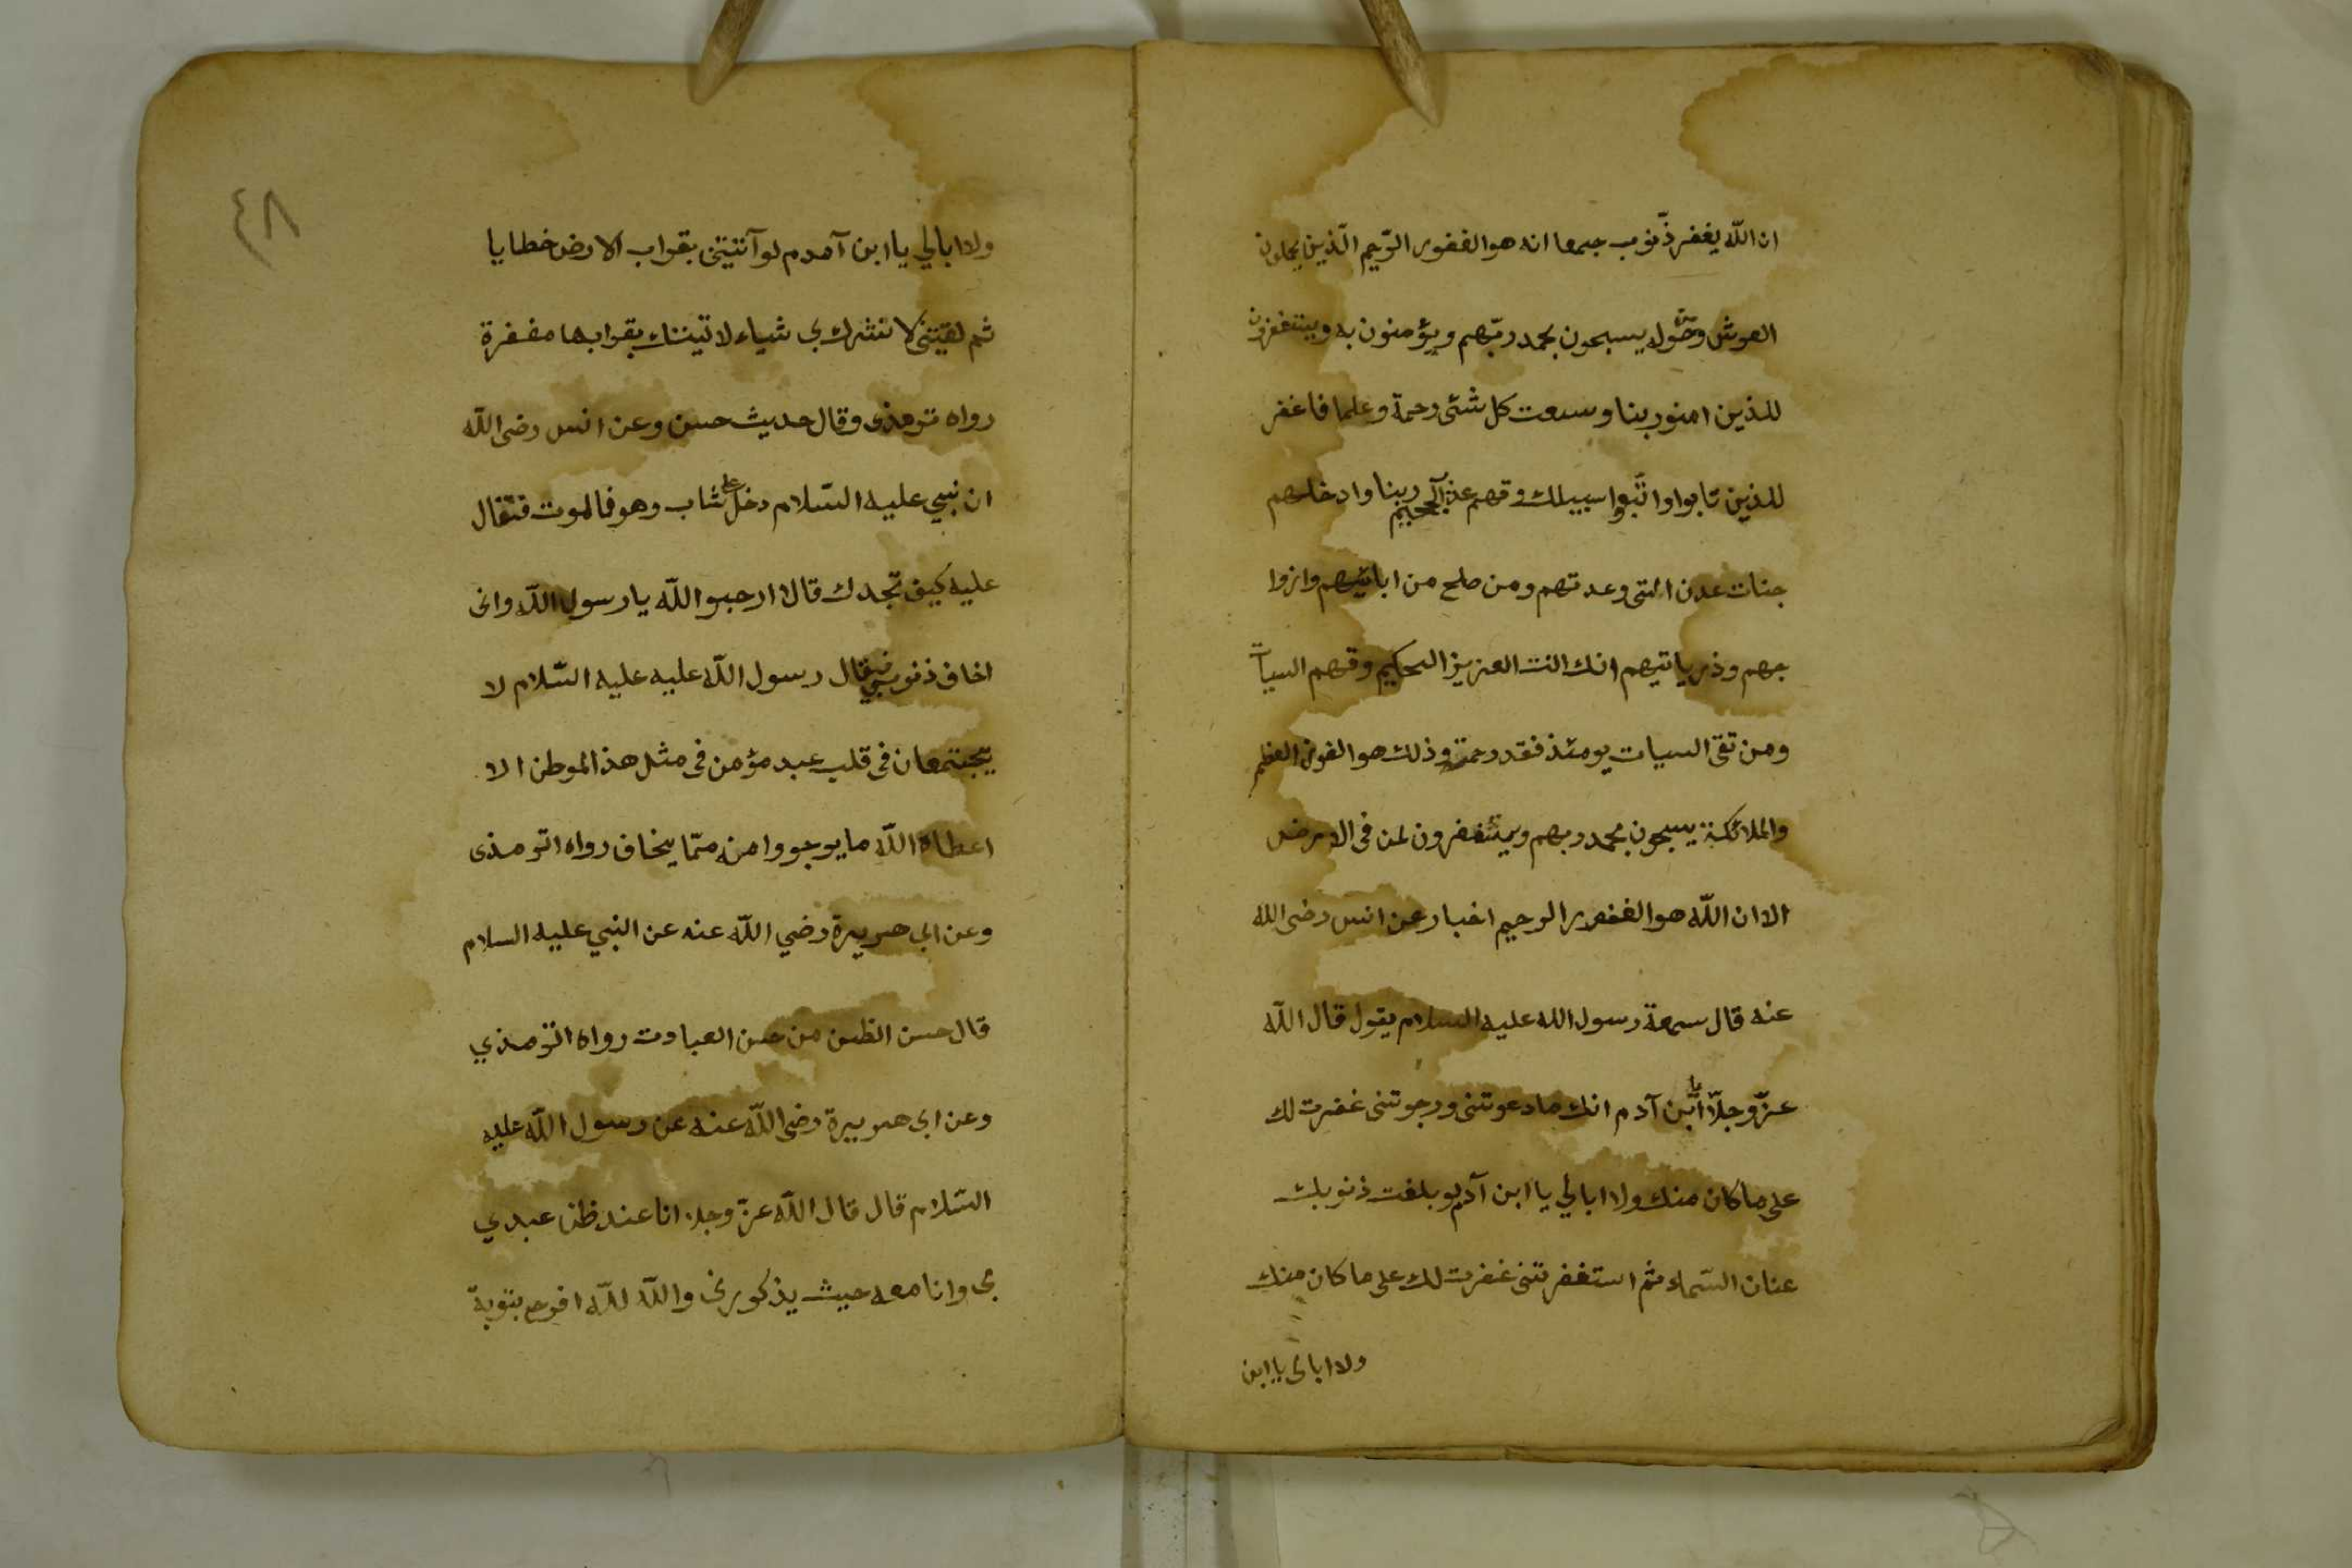 ان اللّه يغفر ذّنوب جيمعا انه هو الغفور الرّحيم الّذين يحلون
العرش وحوله يسبحون بحمد ربّهم ويؤمنون به ويتنغفرون
للذين امنور بنا وسعت كل شئى رحمة وعلما فاغفر
للذين تابوا واتّبعوا سبيلك وقهم عذاب الجحيم ربنا وادخلهم
جنات عدن التى وعدتهم ومن صلح من ابائيهم وازوا
جهم وذرياتيهم انك انت العزيز الحكيم وقهم السيأت
ومن تقى السيات يومئذ فقد رحمته وذلك هو الفوز العظم
والملائكة يسبحون بحمد ربهم ويتنغفرون لمن فى الارض
الا ان اللّه هو الغفور الرحيم اخبار عن انس رضى الله
عنه قال سمعة رسول الله عليه السلام يقول قال اللّه
عزّ وجلّ يا ابن آدم انك ما دعوتنى ورجوتنى غفرت لك
على ما كان منك ولا ابالي يا ابن آدم لو بلغت ذنوبك
عنان السّماء ثم استغفرتنى غفرت لك على ما كان منك
ولا ابالى يا ابن
٤٨
ولا ابالي يا ابن آمدم لو آتنيتنى بقواب الارض خطايا
ثم لقيتنى لا تشرك بى شياء لاتيننك بقرابها مغفرة
رواه ترمذى وقال حديث حسن وعن انس رضى اللّه
ان نبي عليه السّلام دخل على شاب وهو فالموت فتقال
عليه كيف تجدك قال ارجبو اللّه يا رسول اللّه وانى
اخاف ذنوبي فقال رسول اللّه عليه عليه السّلام لا
يجتمعان فى قلب عبد مؤمن فى مثل هذ الموطن الا
اعطاه اللّه ما يوجووا منه ممّا يخاف رواه اترمذى
وعن ابى هريرة رضي اللّه عنه عن النبي عليه السلام
قال حسن الظن من حسن العبادت رواه اترمذي
وعن ابى هريرة رضى اللّه عنه عن رسول اللّه عليه
السّلام قال قال اللّه عزّ وجل انا عند ظن عبدي
بى وانا معه حيث يذكورنى واللّه للّه افرح بتوبة